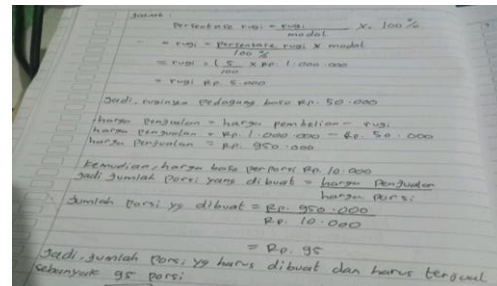 Jawab :
Persentase rugi = rugi / modal x 100 %
= rugi = persentase rugi x modal / 100 %
= rugi = ( 5 / 100 x Rp. 1.000.000
= rugi Rp. 5.000
Jadi, ruginya pedagang baso Rp. 50.000
harga penjualan = harga pembelian - rugi
harga penjualan = Rp. 1.000.000 - Rp. 50.000
harga penjualan = Rp. 950.000
Kemudian, harga baso perporsi Rp. 10.000
Jadi Jumlah Porsi yang dibuat = harga penjualan / harga porsi
Jumlah Porsi yg dibuat = Rp. 950.000 / Rp. 10.000
= Rp. 95
Jadi, jumlah porsi yg harus dibuat dan harus terjual
sebanyak 95 porsi